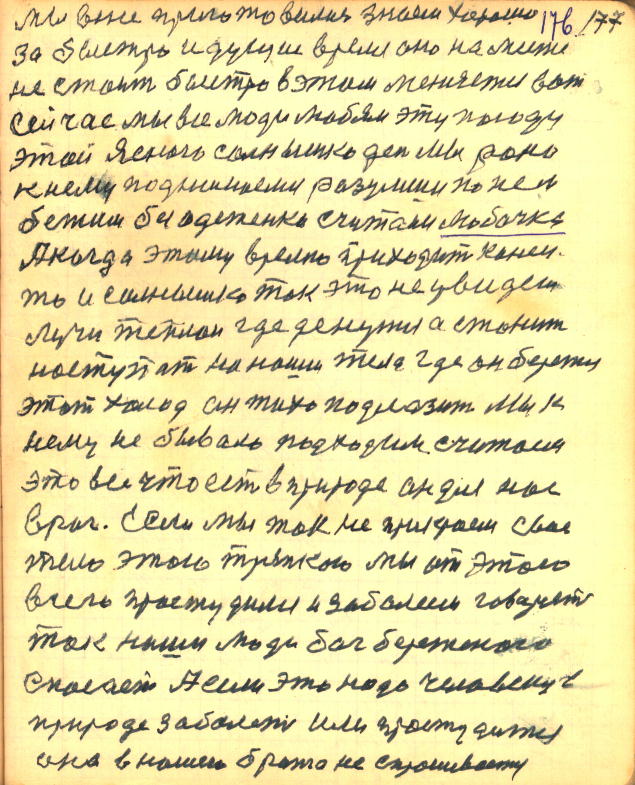 мы вже приготовилис знаем хорошо 176 177
за быстро идущие время оно на мисте
не стоит быстро в этом меняется вот
сейчас мы все люди любям эту погоду
этой ясного солнышко ден мы рано
к нему поднимаемся разумши по ней
бежим без одеженки считаем любочка
А когда этому время приходит конец.
то и солнышко так это не увидеш
лучи теплои где денутся а станит
наступат на наши тела где он бережи
этот холод он тихо подлазит Мы к
нему не бывало подходим считаем
это все что ест в природе он для нас
враг. Если мы так не прикроем свое
тело этого тряпкою мы от этого
всего простудимся и заболеем говарят
так наши люди бог береженого
спасает А если это надо человеку в
природе заболеть или простудится
она в нашего брата не спрашивает